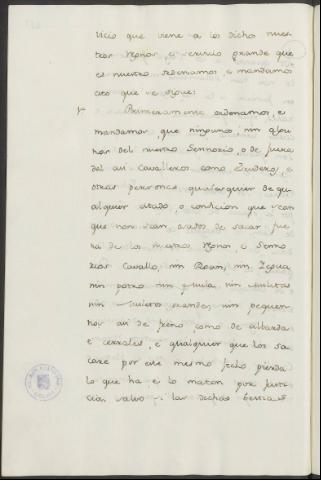 vicio que viene a los dicho nues-
tros regnos, e servicio grande que
es nuestro ordenamos, e mandamos
esto que se sigue:
Primeramente ordenamos, e
mandamos, que ninguno, nin algu-
nos del nuestro Sennorio, o de fuera
del asi Cavalleros como Escuderos, e
otras personas qualesquier de qu-
alquier estado, o condicion que sean
que non sean osados de sacar fue-
ra de los nuestros regnos, e Senno-
rios Cavallo, nin Rosin, nin Yegua
nin potro nin mula, nin muletas
nin muletos grandes, nin pequen-
nos asi de freno, como de albarda
e cerriles, e qualquier que los sa-
care por este mesmo fecho pierda
lo que ha e lo maten por justi-
cia, salvo las dichas bestias